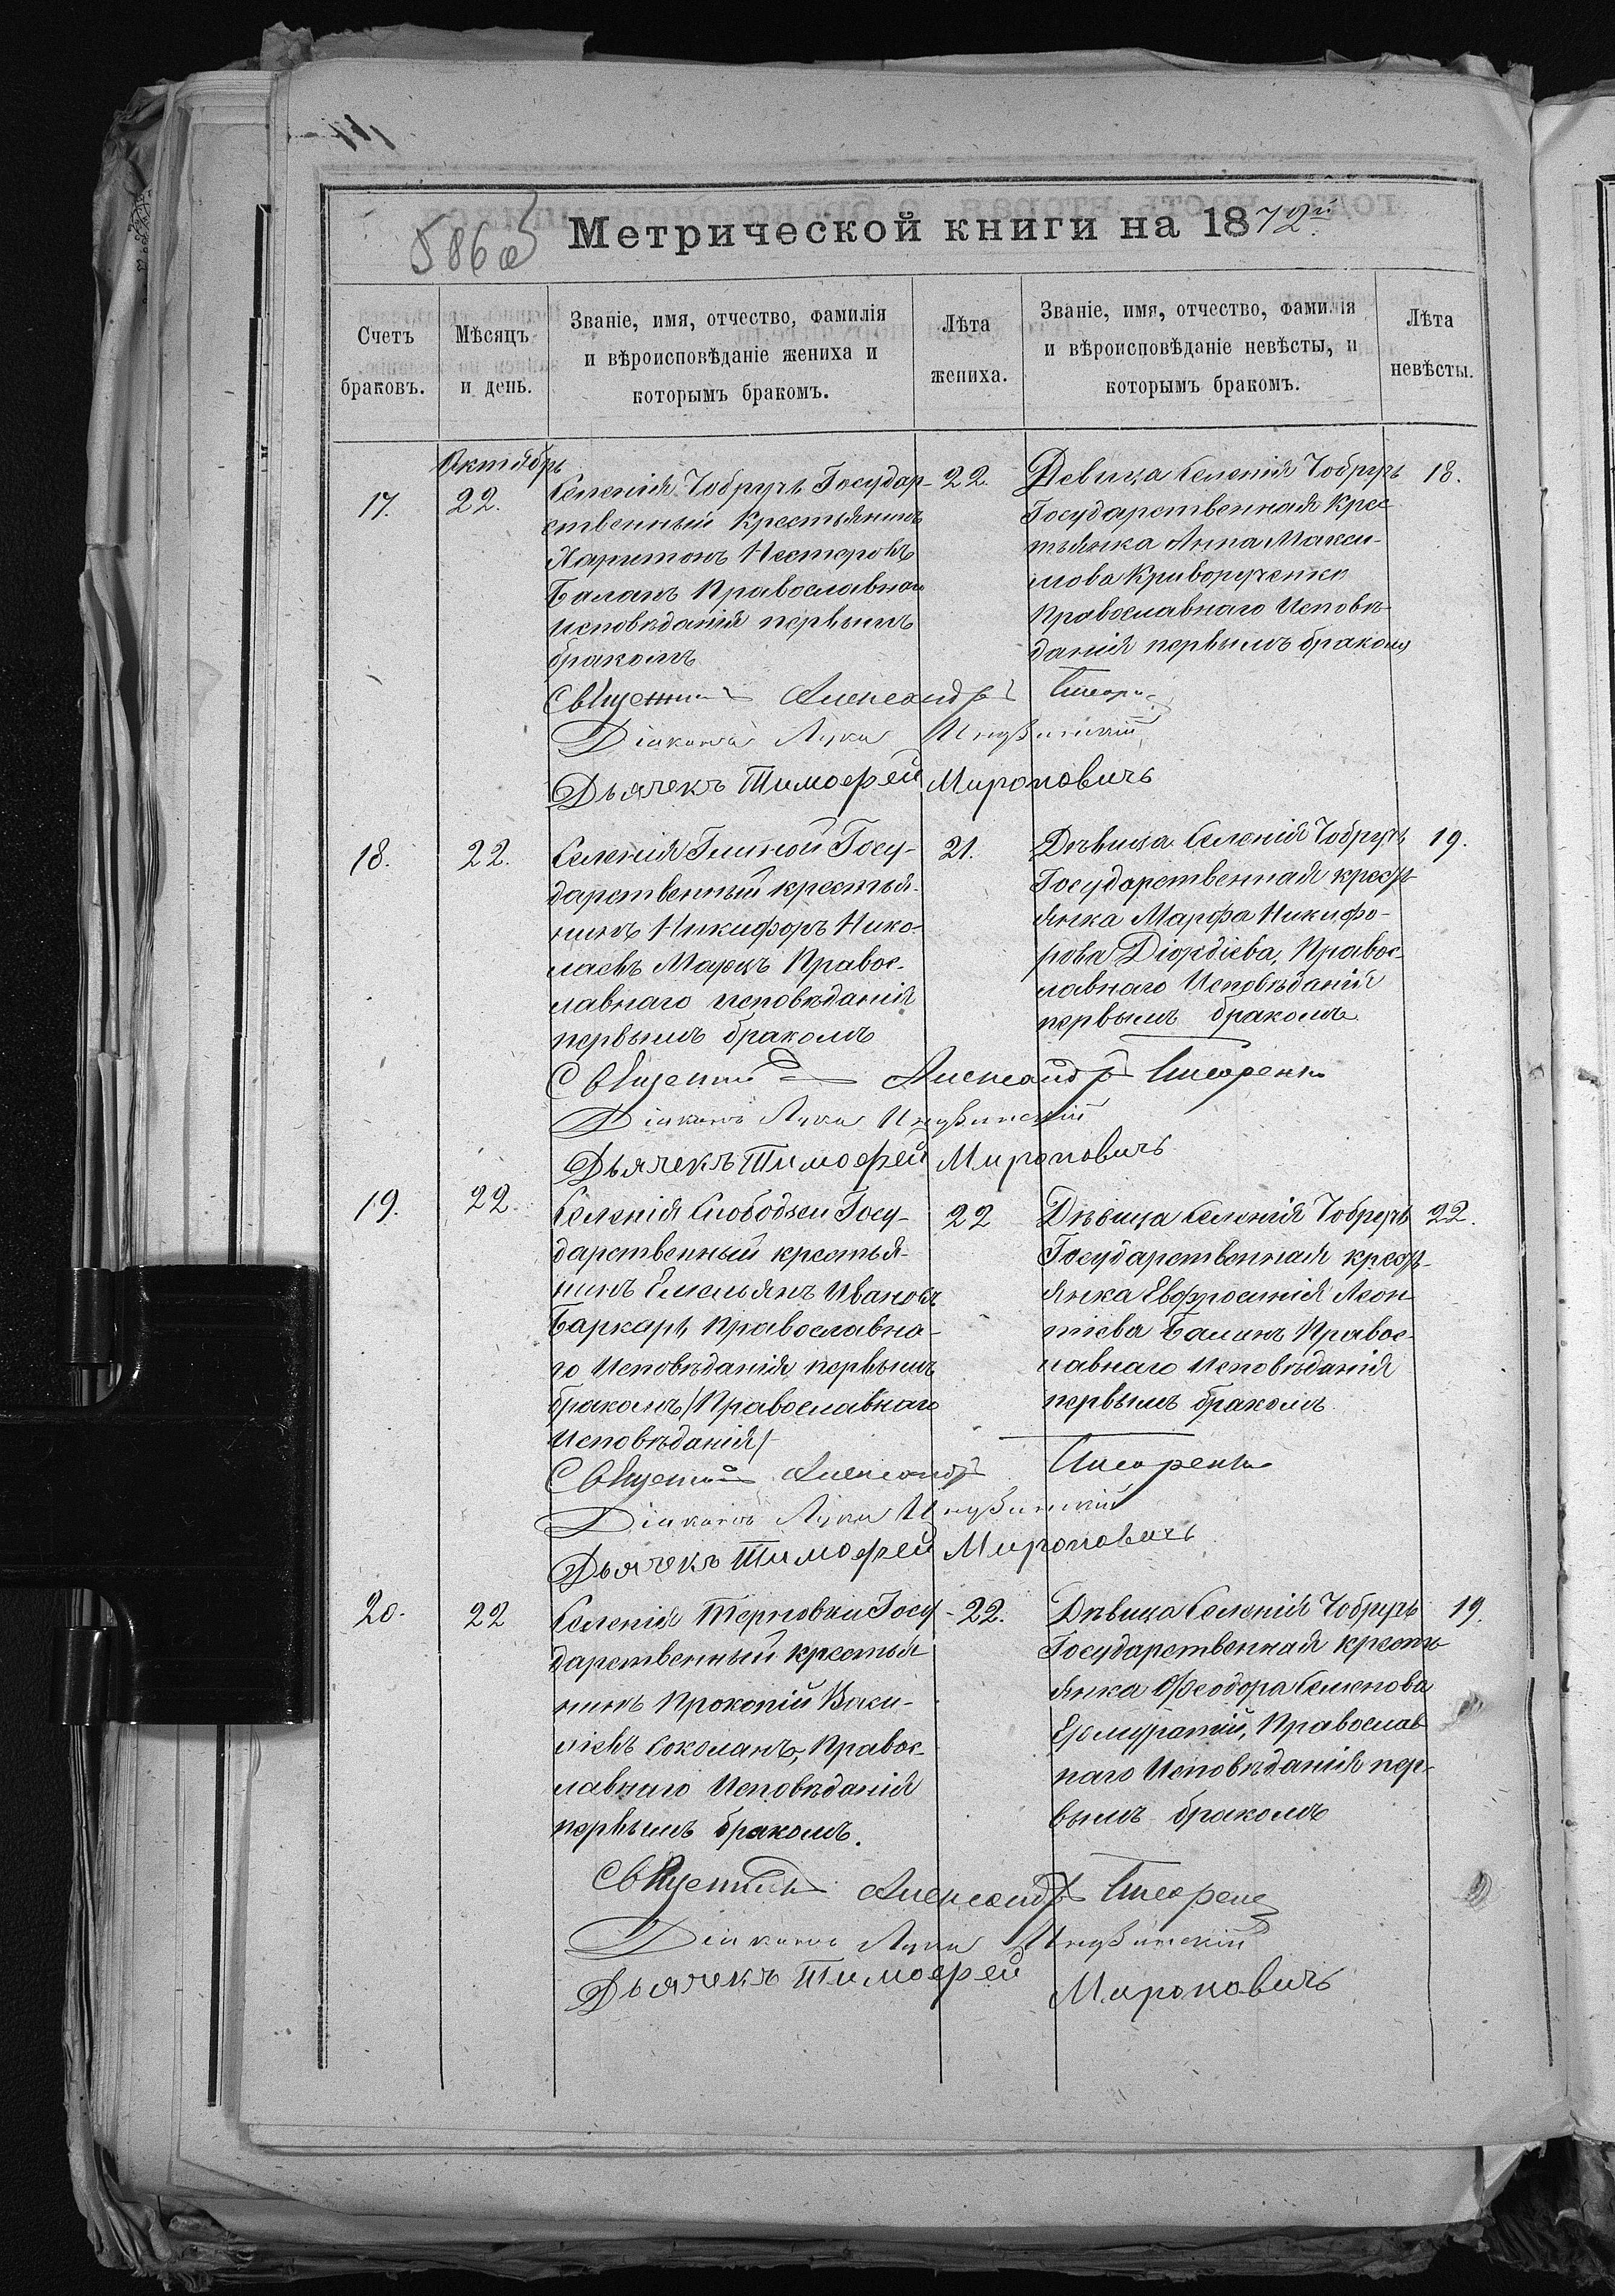 586 об
Метрической книги на 1872й.
Счетъ браковъ.
Мѣсяцъ и день.
Званіе, имя, отчество, фамилія
и вѣроисповѣданіе жениха и
которымъ бракомъ.
Лѣта жениха.
Званіе, имя, отчество, фамилія
и вѣроисповѣданіе невѣсты, и
которымъ бракомъ.
Лѣта невѣсты.
Октябрь
17.
22.
Селенія Чобручъ Государ-
ственный крестьянинъ
Харитонъ Нестеровъ
Баланъ Православнаго
исповѣданія первымъ
бракомъ
22.
Девица Селенія Чобручъ
Государственная крес
тьянка Анна Макси-
мова Криворученко
Православнаго Исповѣ-
данія первымъ бракомъ
18.
Священникъ Александръ
Діаконъ Лука
Дьячекъ Тимофей Мироновичъ
18.
22.
Селенія Глиной Госу-
дарственный крестья-
нинъ Никифоръ Нико-
лаевъ Марецъ Правос-
лавнаго исповѣданія
первымъ бракомъ
21.
Дѣвица Селенія Чобручъ
Государственная крестъ
янка Марфа Никифо-
рова Діордіева, Правос-
лавнаго Исповѣданія
первымъ бракомъ
19.
Священникъ Александръ
Діаконъ Лука
Дьячекъ Тимофей Мироновичъ
19.
22.
Селенія Слободзеи Госу-
дарственный крестья-
нинъ Емельянъ Ивановъ
Баркаръ Православна-
го Исповѣданія первымъ
бракомъ /Православнаго
Исповѣданія/
22
Дѣвица Селенія Чобручъ
Государственная крестъ-
янка Евфросинія Леон
тіева Балинъ Правос-
лавнаго Исповѣданія
первымъ бракомъ
22.
Священникъ Александръ
Діаконъ Лука
Дьячекъ Тимофей Мироновичъ
20.
22
Селенія Терновки Госу-
дарственный крестья
нинъ Прокопій Васи-
ліевъ Соколанъ, Правос-
лавнаго Исповѣданія
первымъ бракомъ.
22.
Дѣвица Селенія Чобручъ
Государственная кресть
янка Феодора Семенова
Православ
наго Исповѣданія пер-
вымъ бракомъ
19.
Священникъ Александръ
Діаконъ Лука
Дьячекъ Тимофей Мироновичъ